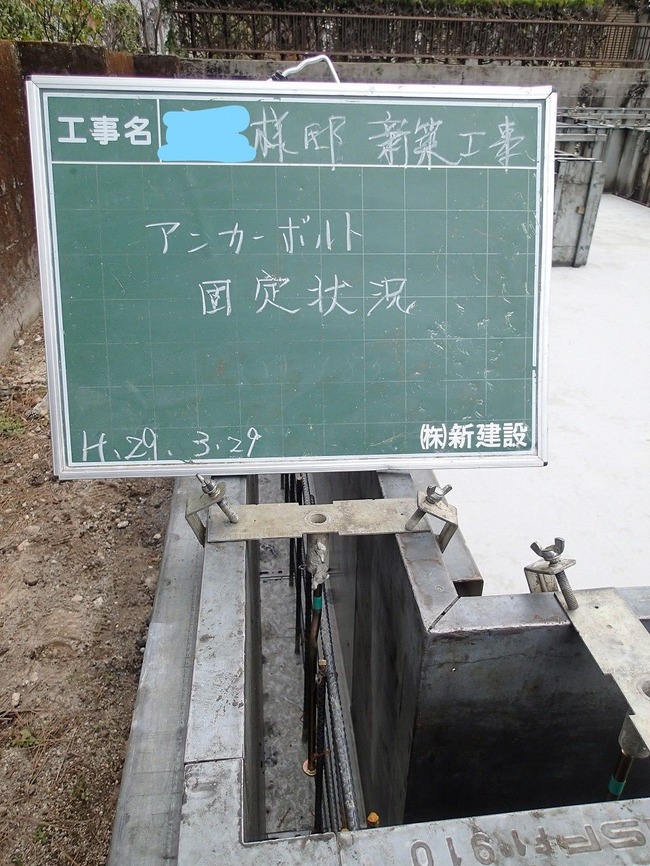 工事名 様邸 新築工事
アンカーボルト
固定状況
H.29.3.29
㈱新建設